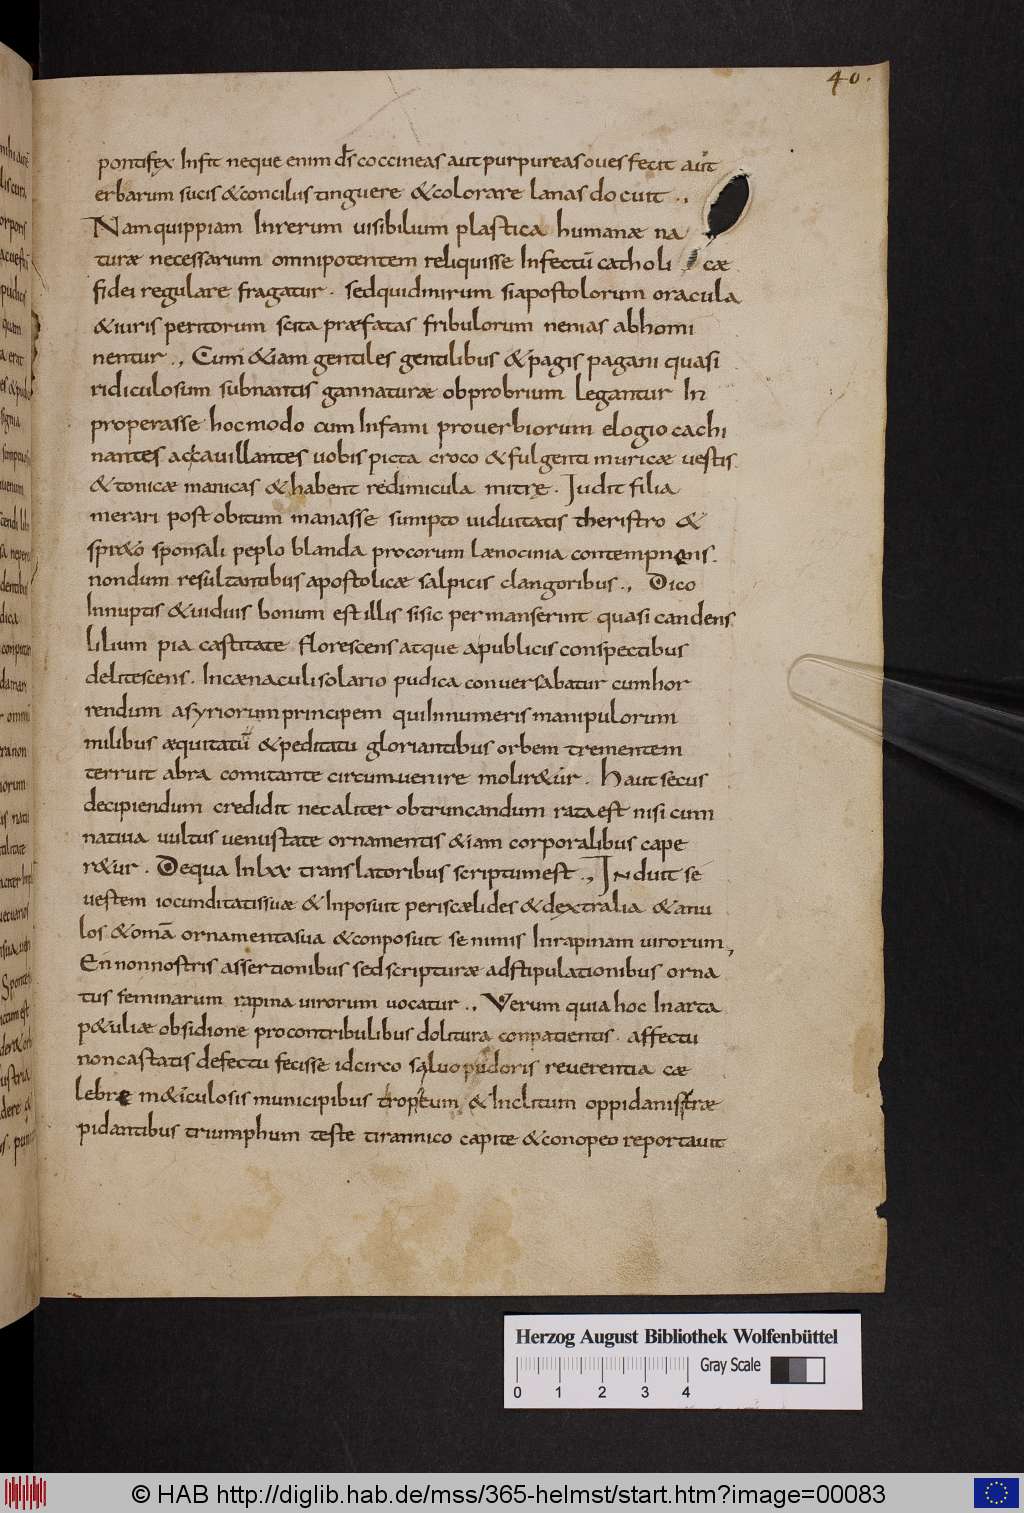 40.
pontifex Infit neque enim d̄s coccineas aut purpureas oues fecit aut
erbarum sucis & conciliis tinguere & colorare lanas docuit .,
Nam quippiam In rerum uisibilium plastica humanæ na
turæ necessarium omnipotentem reliquisse Infectū catholi cæ
fidei regulare fragatur . sed quid mirum si apostolorum oracula
& iuris peritorum scita præfatas fribulorum nenias abhomi
nentur ., Cum & iam gentiles gentilibus & pagis pagani quasi
ridiculosum subnantis gannaturæ obprobrium legantur In
properasse hoc modo cum Infami prouerbiorum elogio cachi
nantes ac cauillantes uobis picta croco & fulgenti muricæ uestis
& tonicæ manicas & habent redimicula mitrę . Judit filia
merari post obitum manasse sumpto uiduitatis theristro &
spr&o sponsali peplo blanda procorum lænocinia contempnens .
nondum resultantibus apostolicæ salpicis clangoribus ., Dico
Innuptis & uiduis bonum est illis si sic permanserint quasi candens
lilium pia castitate florescens atque a publicis conspectibus
delitescens . In cænaculi solario pudica conuersabatur cum hor
rendum asyriorum principem qui Innumeris manipulorum
milibus æquitatū & peditatu gloriantibus orbem trementem
terruit abra comitante circumuenire molir&ur . Haut secus
decipiendum credidit nec aliter obtruncandum rata est nisi cum
natiua uultus uenustate ornamentis & iam corporalibus cape
r&ur . De qua In lxx translatoribus scriptum est ., Induit se
uestem iocunditatis suæ & Inposuit periscælides & dextralia & anu
los & omā ornamenta sua & conposuit se nimis In rapinam uirorum,
En non nostris assertionibus sed scripturæ adstipulationibus orna
tus feminarum rapina uirorum uocatur ., Verum quia hoc In arta
p&uliæ obsidione pro contribulibus dolitura conpatientis . affectu
non castatis defectu fecisse idcirco saluo pudoris reuerentia cæ
lebre m&iculosis municipibus tropeum & Inclitum oppidanis træ
pidantibus triumphum teste tirannico capite & conopeo reportauit
Herzog August Bibliothek Wolfenbüttel
0 1 2 3 4 Gray Scale
© HAB http://diglib.hab.de/mss/365-helmst/start.htm?image=00083